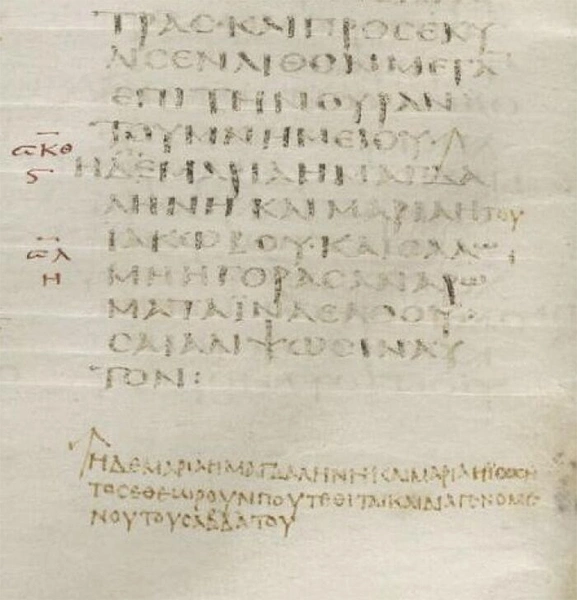 ΤΡΑϹ·ΚΑΙΠΡΟϹΕΚΥ
ΛΙϹΕΝΛΙΘΟΝΜΕΓΑ
ΕΠΙΤΗΝΘΥΡΑΝ
ϹΚΘ ΤΟΥΜΝΗΜΕΙΟΥ·
Ϛ ΗΔΕΜΑΡΙΑΗΜΑΓΔΑ
ΛΗΝΗΚΑΙΜΑΡΙΑΗΤΟΥ
ϹΛ ΙΑΚΩΒΟΥ·ΚΑΙϹΑΛΩ
Η ΜΗΗΓΟΡΑϹΑΝΑΡΩ
ΜΑΤΑΪΝΑΕΛΘΟΥ
ϹΑΙΑΛΙΨΩϹΕΙΝΑΥ
ΤΟΝ:
ΗΔΕΜΑΡΙΑΗΜΑΓΔΑΛΗΝΗΚΑΙΜΑΡΙΑΗΪΩϹΗ
ΤΟϹΕΘΕΩΡΟΥΝΠΟΥΤΕΘΙΤΑΙΚΑΙΔΙΑΓΕΝΟΜΕ
ΝΟΥΤΟΥϹΑΒΒΑΤΟΥ